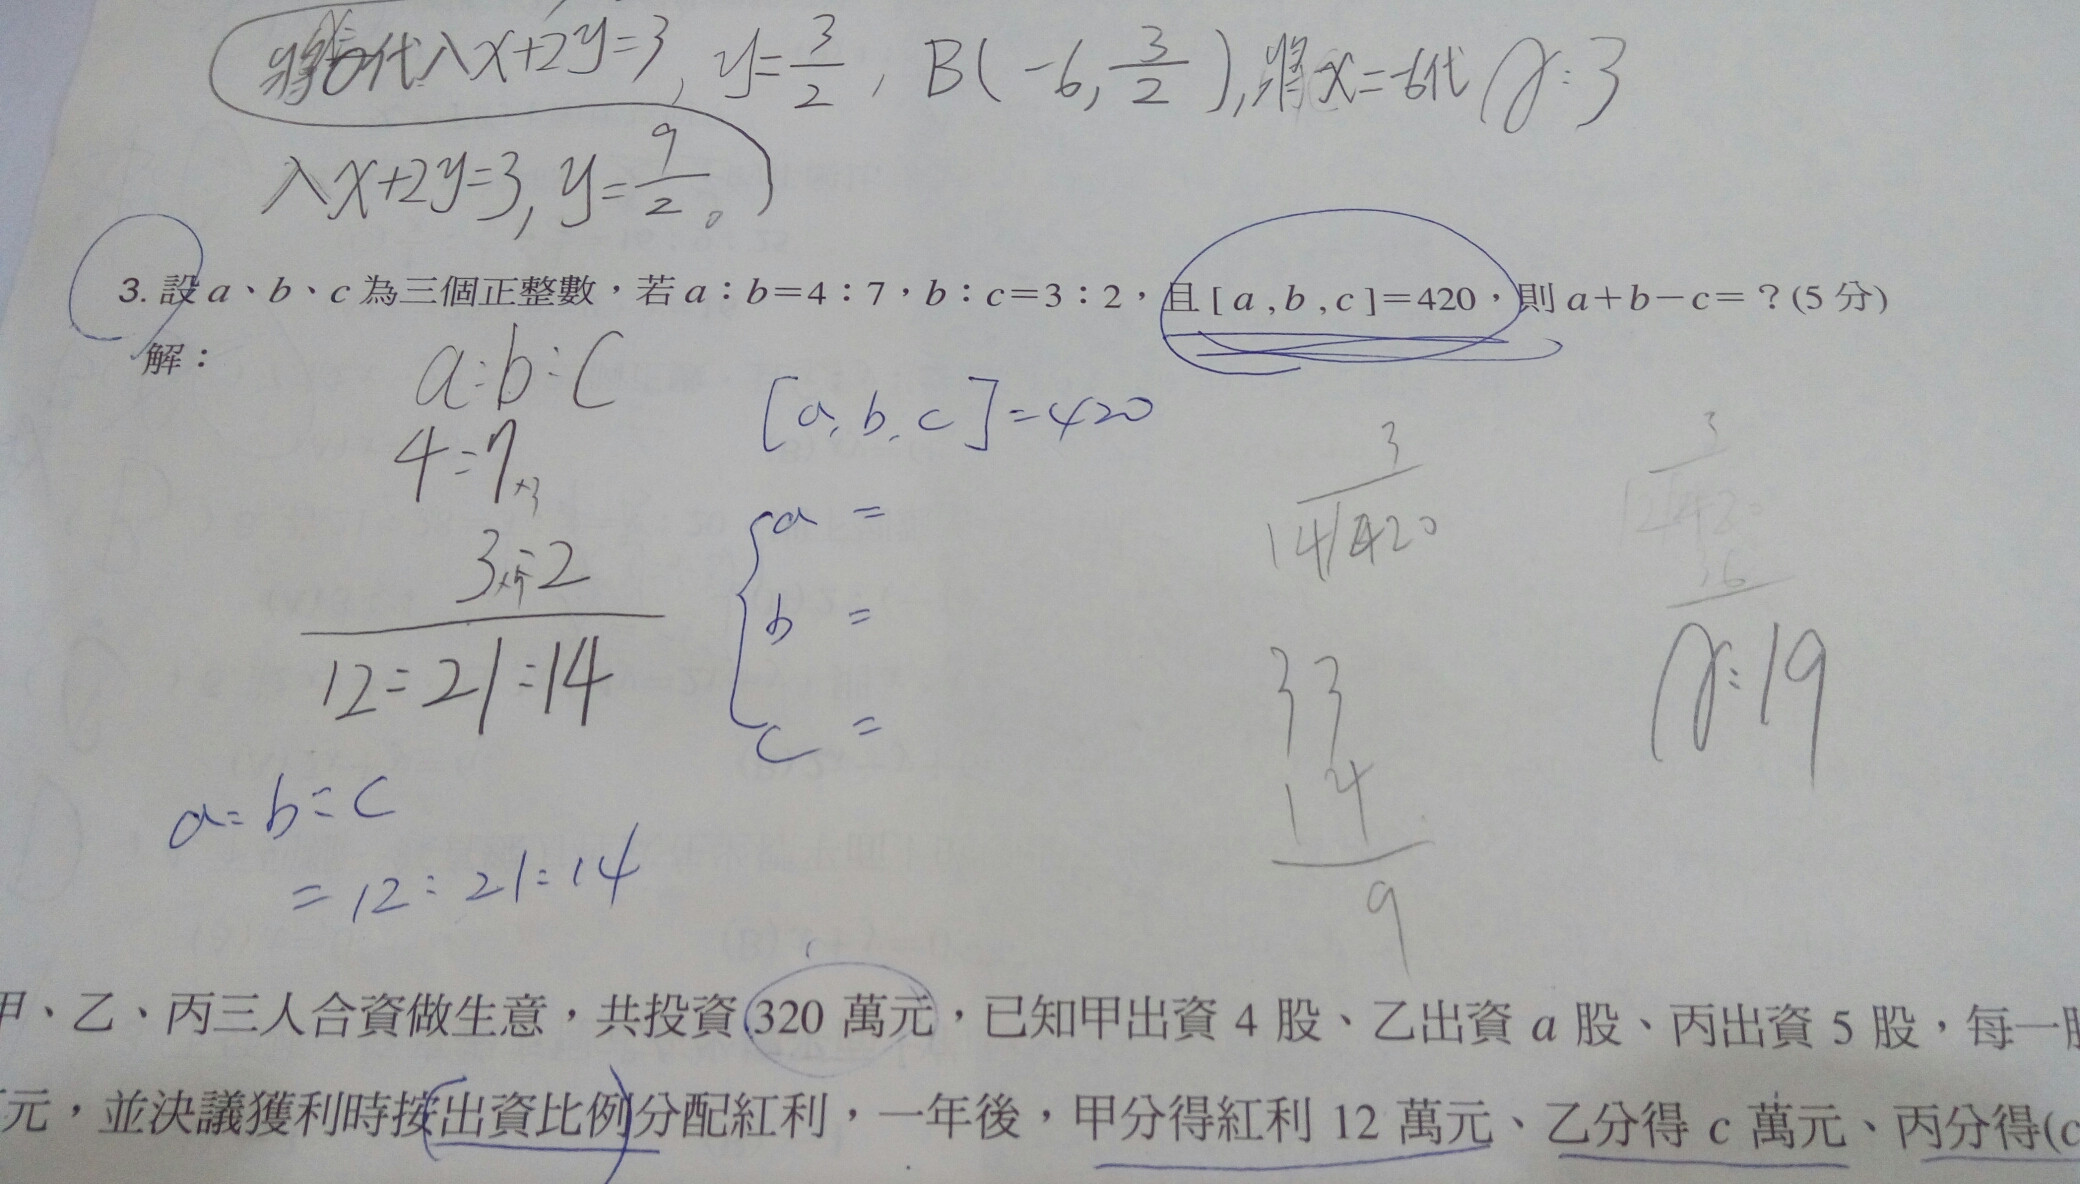 代入x+2y=3, y=3/2, B(-6, 3/2), 將x=-6代
入x+2y=3, y=9/2。
A:3
3. 設 a、b、c 為三個正整數，若 a：b=4：7，b：c=3：2，且 [ a , b , c ]=420，則 a+b-c=？(5 分)
解：
a:b:c
4:7 ×3
3:2 ×7
12:21:14
[a, b, c]=420
a =
b =
c =
a:b:c
=12:21:14
3
14/420
33
14
9
3
A:19
甲、乙、丙三人合資做生意，共投資 320 萬元，已知甲出資 4 股、乙出資 a 股、丙出資 5 股，每一
元，並決議獲利時按出資比例分配紅利，一年後，甲分得紅利 12 萬元、乙分得 c 萬元、丙分得(c